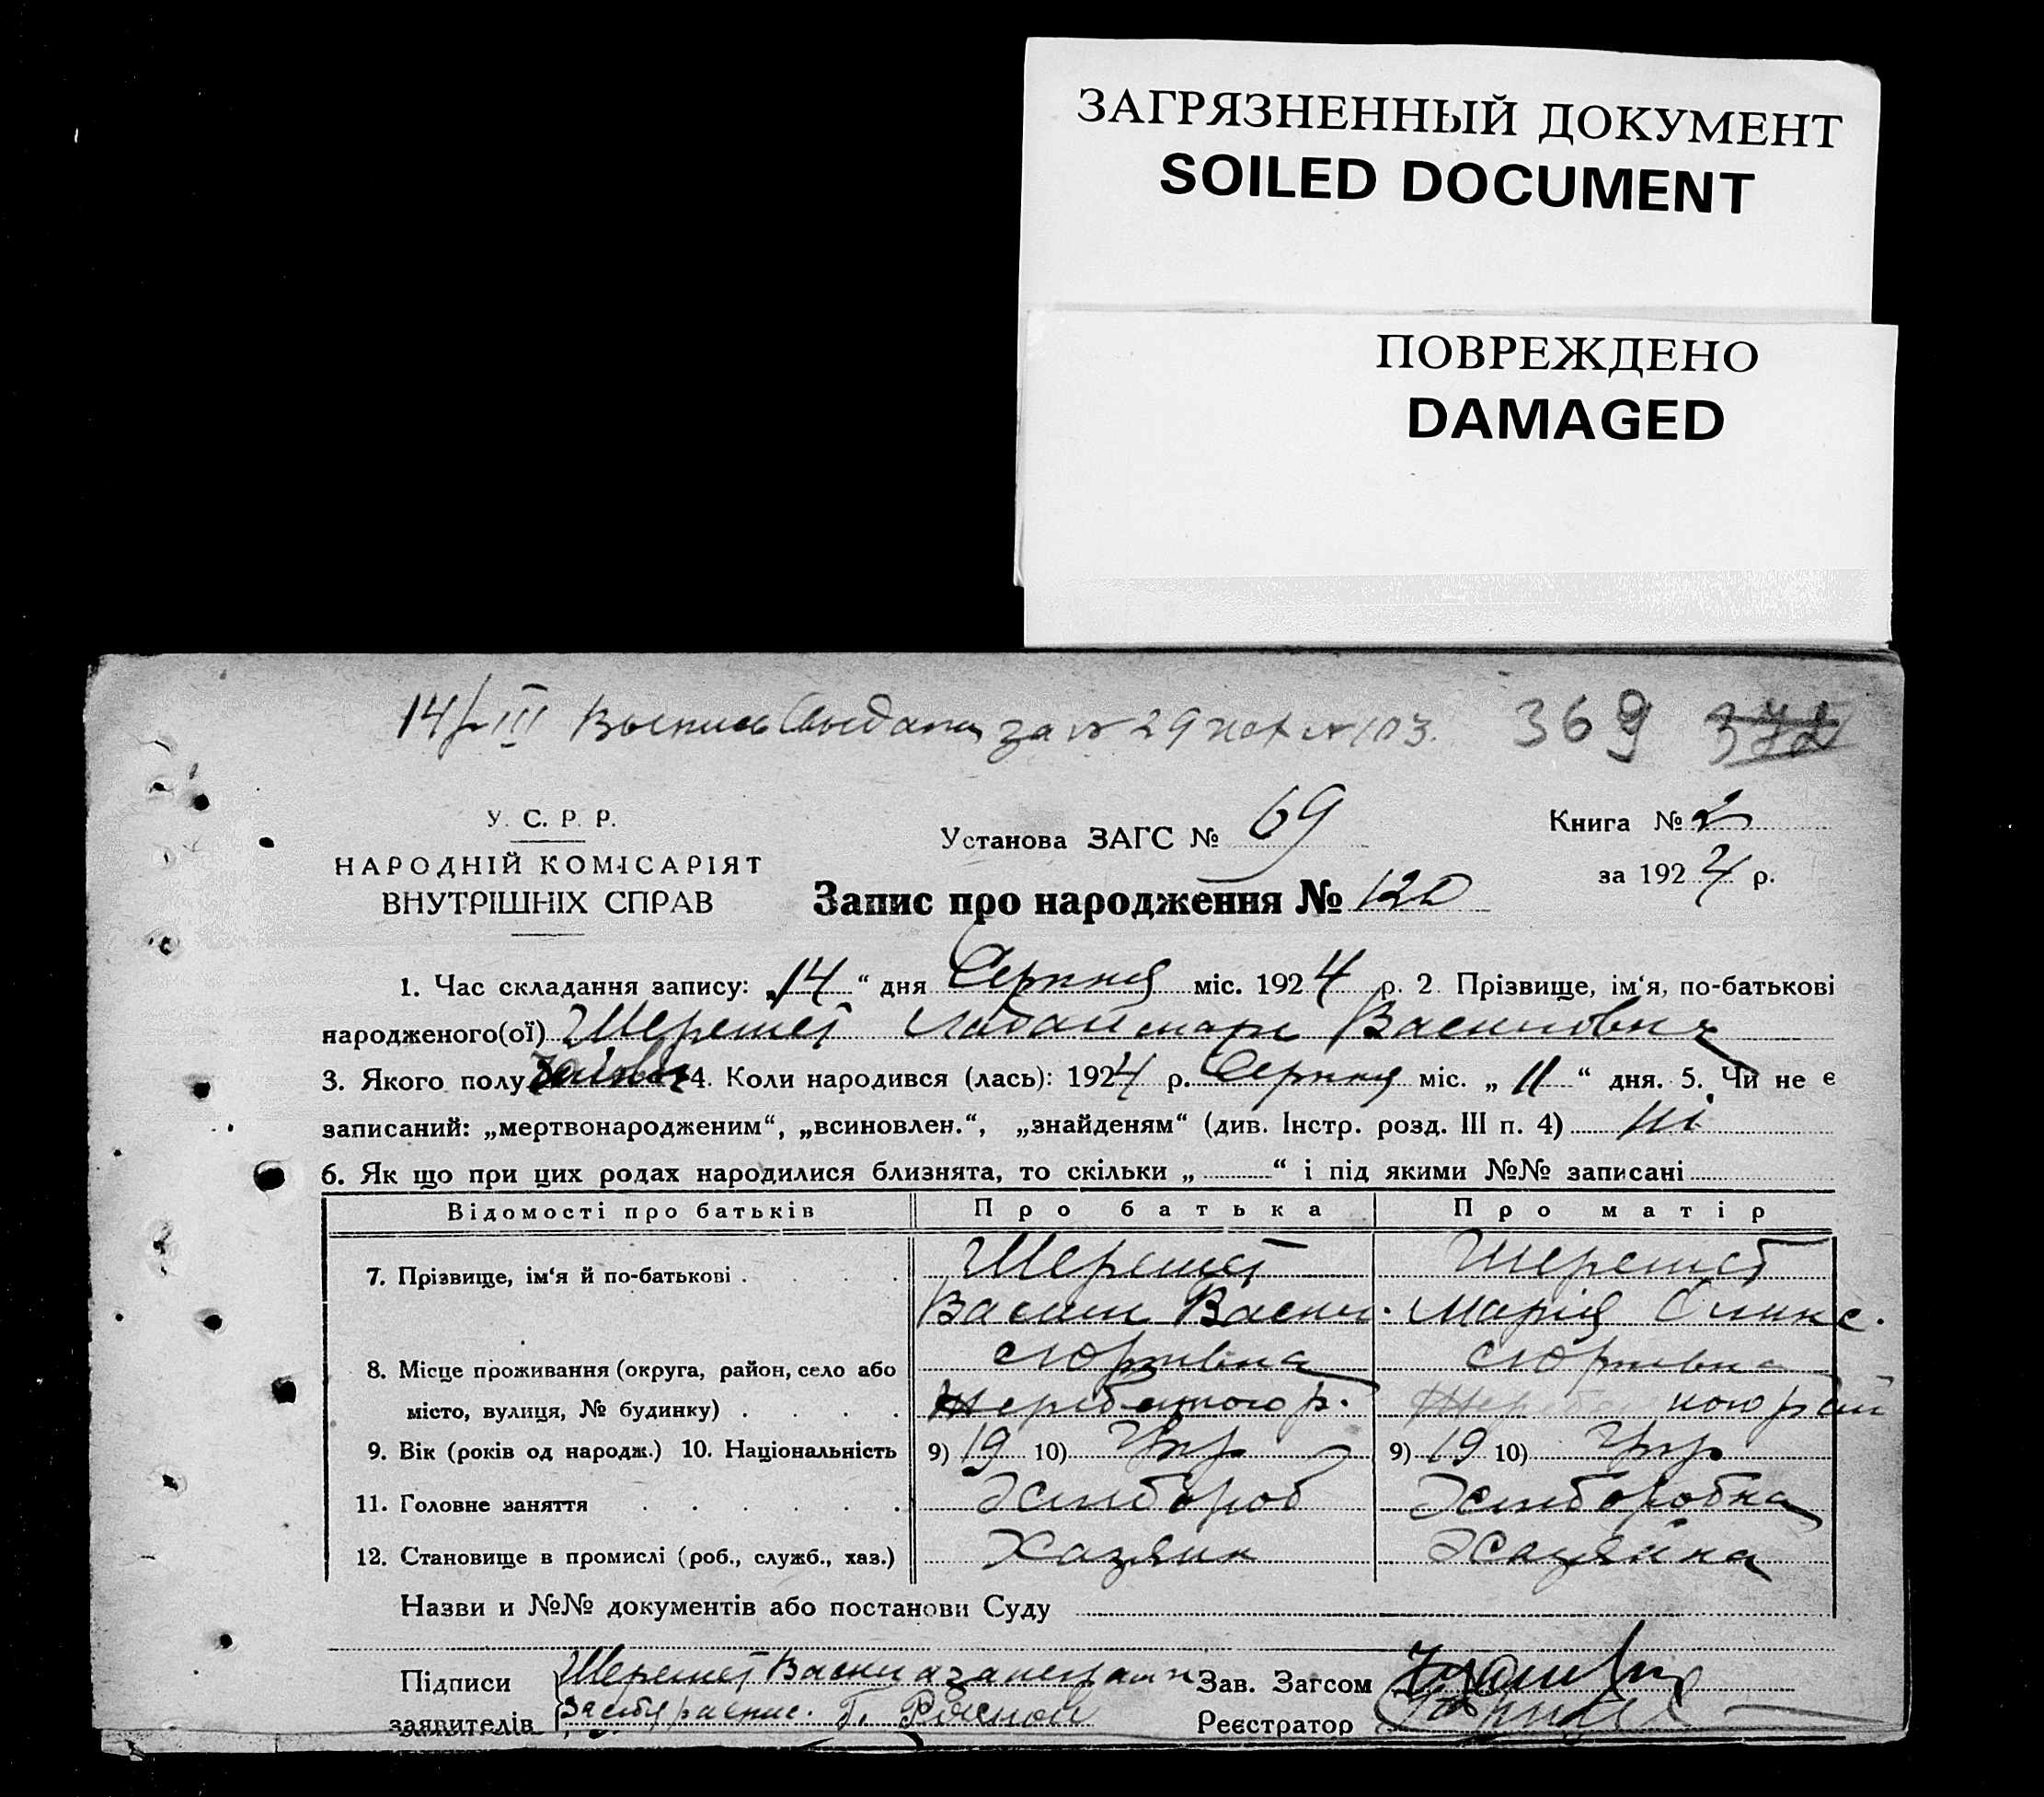 ЗАГРЯЗНЕННЫЙ ДОКУМЕНТ
SOILED DOCUMENT
ПОВРЕЖДЕНО
DAMAGED
14/III за № 29 № 103. 369 372
У. С. Р. Р.
НАРОДНІЙ КОМІСАРІЯТ
ВНУТРІШНІХ СПРАВ
Установа ЗАГС № 69
Книга № 2
за 1924 р.
Запис про народження № 120
1. Час складання запису: „14“ дня Серпня міс. 1924 р. 2 Прізвище, ім‘я, по-батькові
народженого(ої) Шеремет
3. Якого полу 4. Коли народився (лась): 1924 р. Серпня міс. „11“ дня. 5. Чи не є
записаний: „мертвонародженим“, „всиновлен.“, „знайденям“ (див. Інстр. розд. III п. 4) ні
6. Як що при цих родах народилися близнята, то скільки „ “ і під якими №№ записані
Відомості про батьків Про батька Про матір
7. Прізвище, ім‘я й по-батькові Шеремет Шеремет
Васил Васил. Марія
8. Місце проживання (округа, район, село або
місто, вулиця, № будинку)
9. Вік (років од народж.) 10. Національність 9) 19 10) Укр 9) 19 10) Укр.
11. Головне заняття Хлібороб Хлiборобка
12. Становище в промислі (роб., служб., хаз.) Хазяин Хазяйка
Назви и №№ документів або постанови Суду
Підписи Шеремет Васил Зав. Загсом
заявителів Реєстратор